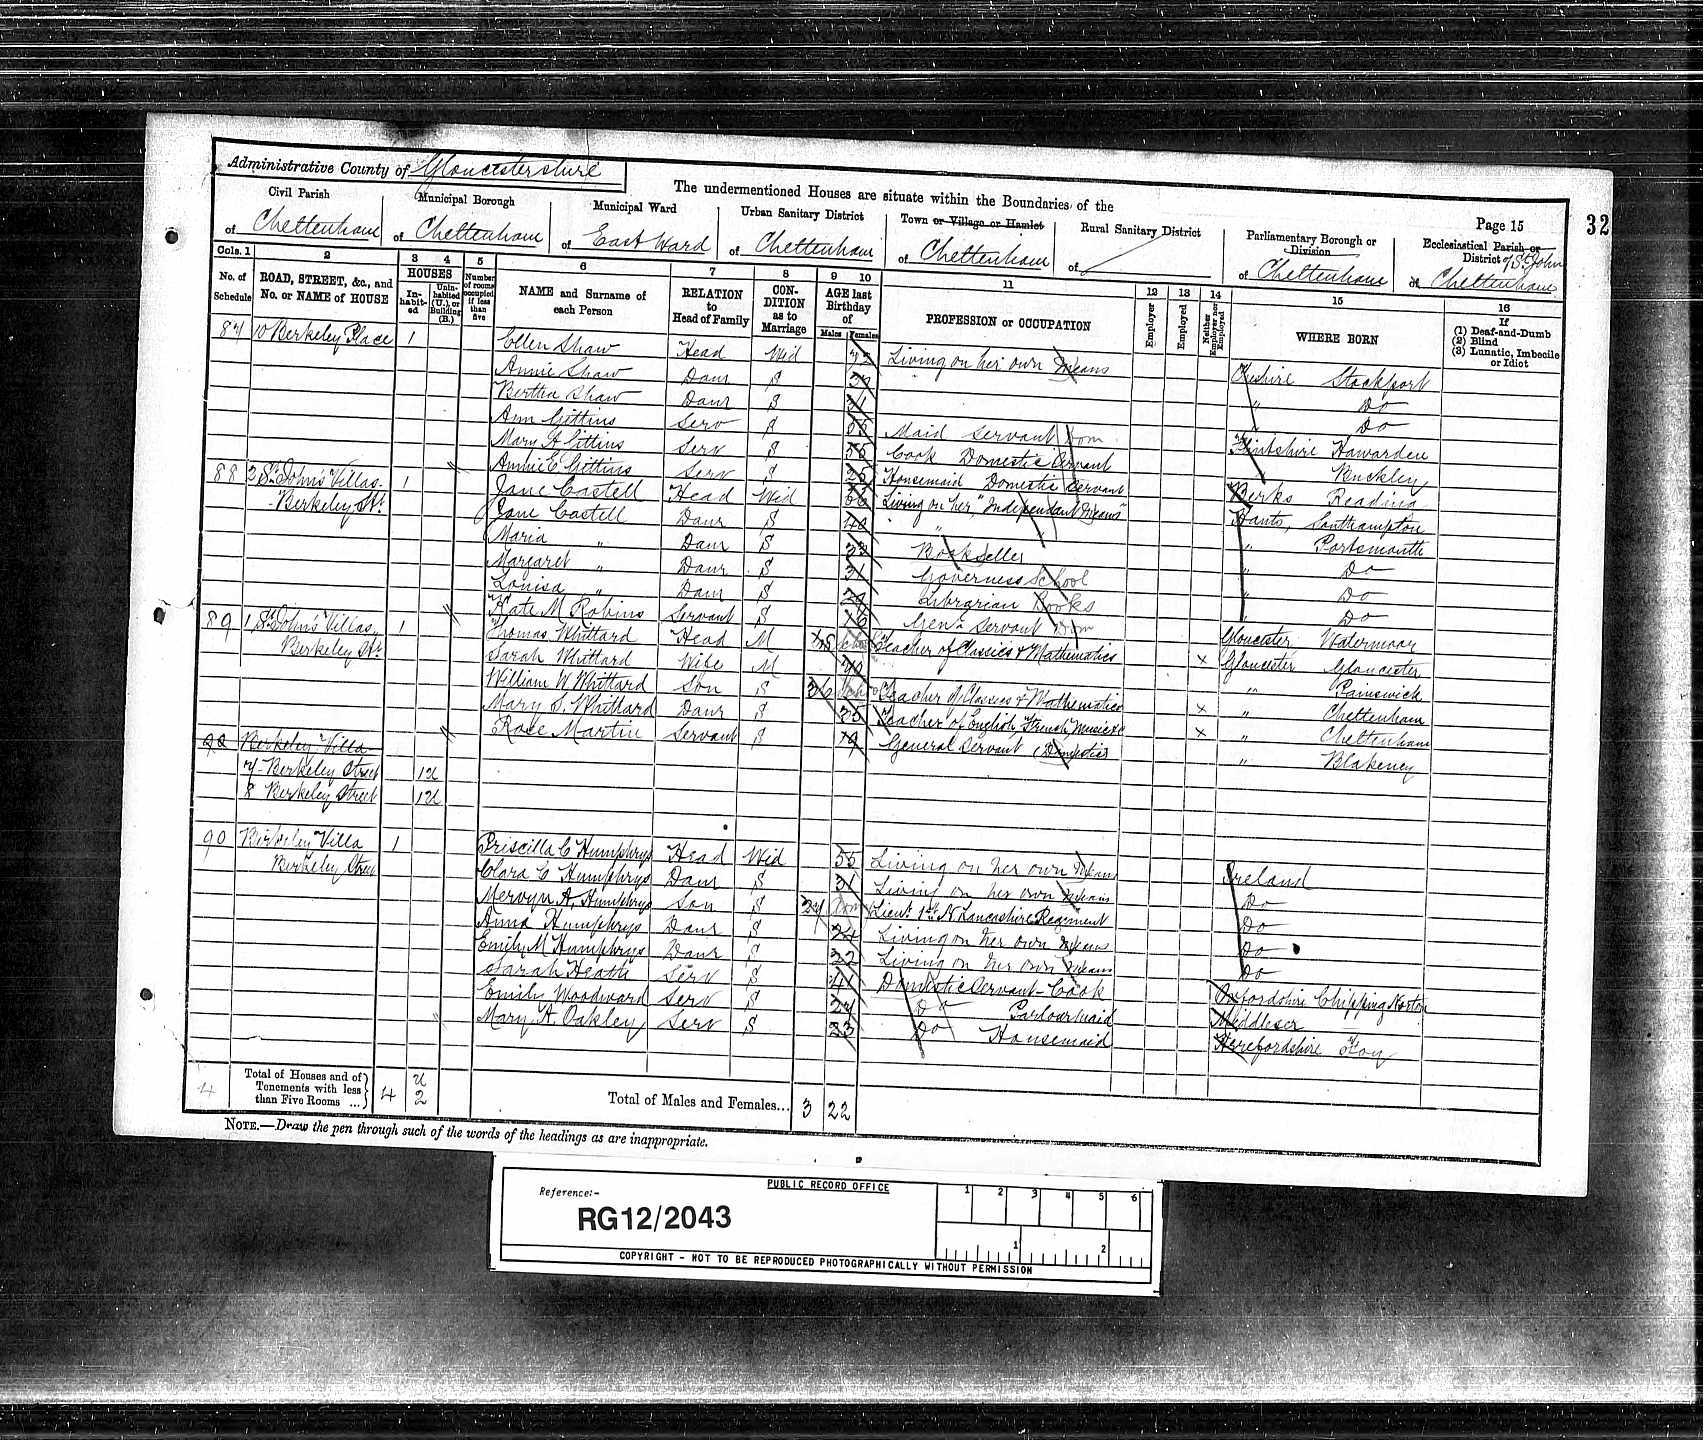 Administrative County of Gloucestershire
The undermentioned Houses are situate within the Boundaries of the
Page 15
32
Civil Parish of Cheltenham
Municipal Borough of Cheltenham
Municipal Ward of East Ward
Urban Sanitary District of Cheltenham
Town or Village or Hamlet of Cheltenham
Rural Sanitary District of
Parliamentary Borough or Division of Cheltenham
Ecclesiastical Parish or District of St. John Cheltenham
Cols. 1 2 3 4 5 6 7 8 9 10 11 12 13 14 15 16
No. of Schedule
ROAD, STREET, &c., and No. or NAME of HOUSE
HOUSES
In-habit-ed
Unin-habited (U.), or Building (B.)
Number of rooms occupied if less than five
NAME and Surname of each Person
RELATION to Head of Family
CON-DITION as to Marriage
AGE last Birthday of
Males Females
PROFESSION or OCCUPATION
Employer
Employed
Neither Employer nor Employed
WHERE BORN
If (1) Deaf-and-Dumb (2) Blind (3) Lunatic, Imbecile or Idiot
87 10 Berkeley Place 1 Ellen Shaw Head Wid Living on her own Means
Annie Shaw Daur S Cheshire Stockport
Bertha Shaw Daur S 31 " Do
Ann Gittins Serv S Maid Servant Dom " Do
Mary A Gittins Serv S Cook Domestic Servant Flintshire Hawarden
Annie E Gittins Serv S 25 Housemaid Domestic Servant
88 3 St. John's Villas 1 Jane Castell Head Wid 66 Living on her "Independant Means" Berks Reading
Berkeley St. Jane Castell Daur S 40 " Hants, Southampton
Maria " Daur S Bookseller " Portsmouth
Margaret " Daur S 31 Governess School " Do
Louisa " Daur S 29 Librarian Books " Do
Kate M Robins Servant S 16 Genl Servant Dom " Do
89 1 St. John's Villas 1 Thomas Whittard Head M Teacher of Classics & Mathematics Gloucester Watermoor
Berkeley St. Sarah Whittard Wife M 70 x Gloucester Gloucester
William W Whittard Son S 36 Teacher of Classics & Mathematics " Painswick
Mary S. Whittard Daur S 35 Teacher of English, French, Music &c x " Cheltenham
Rose Martin Servant S 19 General Servant (Domestic) x " Cheltenham
90 Berkeley Villa " Blakeney
7 Berkeley Street 1U
8 Berkeley Street 1U
90 Berkeley Villa 1 Priscilla C Humphrys Head Wid 55 Living on her own Means
Berkeley Street Clara C Humphrys Daur S 31 Living on her own Means Ireland
Mervyn A. Humphrys Son S 27 Lieut. 1st N. Lancashire Regiment Do
Anna Humphrys Daur S 24 Living on her own Means Do
Emily M Humphrys Daur S 22 Living on her own Means Do
Sarah Heath Serv S 41 Domestic Servant - Cook Do
Emily Woodward Serv S 24 Do Parlourmaid Oxfordshire Chipping Norton
Mary A. Oakley Serv S 23 Do Housemaid Middlesex
Herefordshire Foy
4 Total of Houses and of Tenements with less than Five Rooms ... 4 U 2 Total of Males and Females... 3 22
NOTE.—Draw the pen through such of the words of the headings as are inappropriate.
PUBLIC RECORD OFFICE
Reference:-
RG12/2043
1 2 3 4 5 6
1 2
COPYRIGHT - NOT TO BE REPRODUCED PHOTOGRAPHICALLY WITHOUT PERMISSION